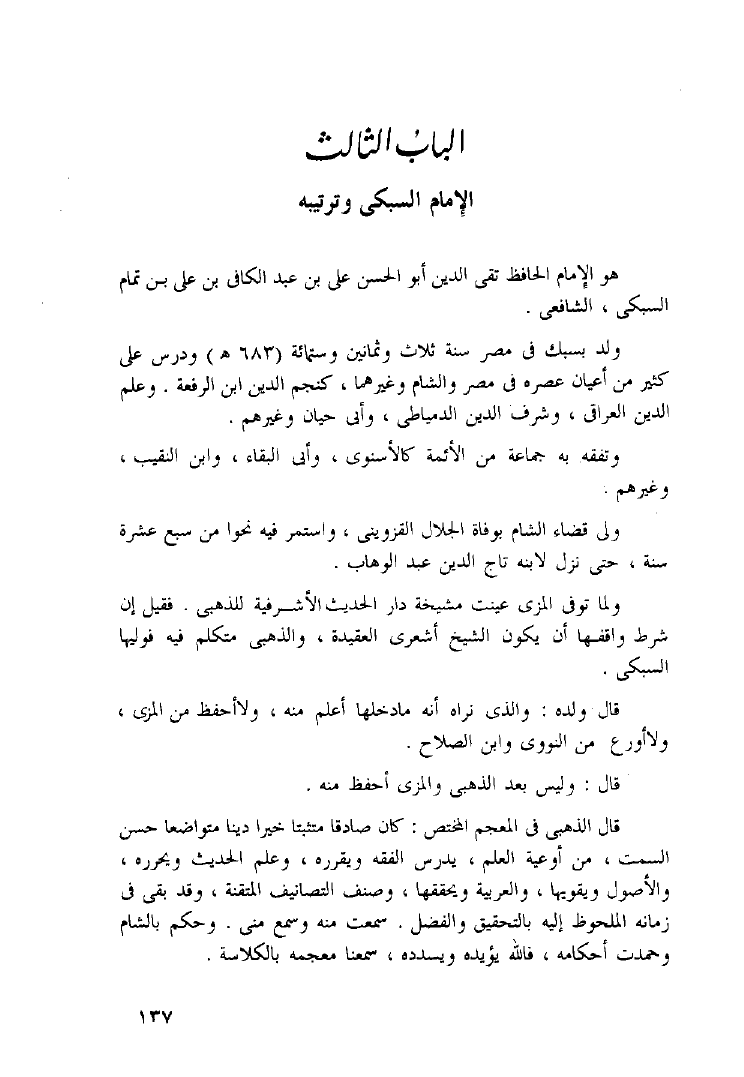 الباب الثالث
الإمام السبكى وترتيبه
هو الإمام الحافظ تقى الدين أبو الحسن على بن عبد الكافى بن على بـن تمام
السبكى ، الشافعى .
ولد بسبك فى مصر سنة ثلاث وثمانين وستمائة (٦٨٣ ه‍ ) ودرس على
كثير من أعيان عصره فى مصر والشام وغيرهما ، كنجم الدين ابن الرفعة . وعلم
الدين العراقى ، وشرف الدين الدمياطى ، وأبى حيان وغيرهم .
وتفقه به جماعة من الأئمة كالأسنوى ، وأبى البقاء ، وابن النقيب ،
وغيرهم .
ولى قضاء الشام بوفاة الجلال القزوينى ، واستمر فيه نحوا من سبع عشرة
سنة ، حتى نزل لابنه تاج الدين عبد الوهاب .
ولما توفى المزى عينت مشيخة دار الحديث الأشـرفية للذهبى . فقيل إن
شرط واقفـها أن يكون الشيخ أشعرى العقيدة ، والذهبى متكلم فيه فوليها
السبكى .
قال ولده : والذى نراه أنه مادخلها أعلم منه ، ولاأحفظ من المزى ،
ولاأورع من النووى وابن الصلاح .
قال : وليس بعد الذهبى والمزى أحفظ منه .
قال الذهبى فى المعجم المختص : كان صادقا متثبتا خيرا دينا متواضعا حسن
السمت ، من أوعية العلم ، يدرس الفقه ويقرره ، وعلم الحديث ويحرره ،
والأصول ويقويها ، والعربية ويحققها ، وصنف التصانيف المتقنة ، وقد بقى فى
زمانه الملحوظ إليه بالتحقيق والفضل . سمعت منه وسمع منى . وحكم بالشام
وحمدت أحكامه ، فالله يؤيده ويسدده ، سمعنا معجمه بالكلاسة .
١٣٧